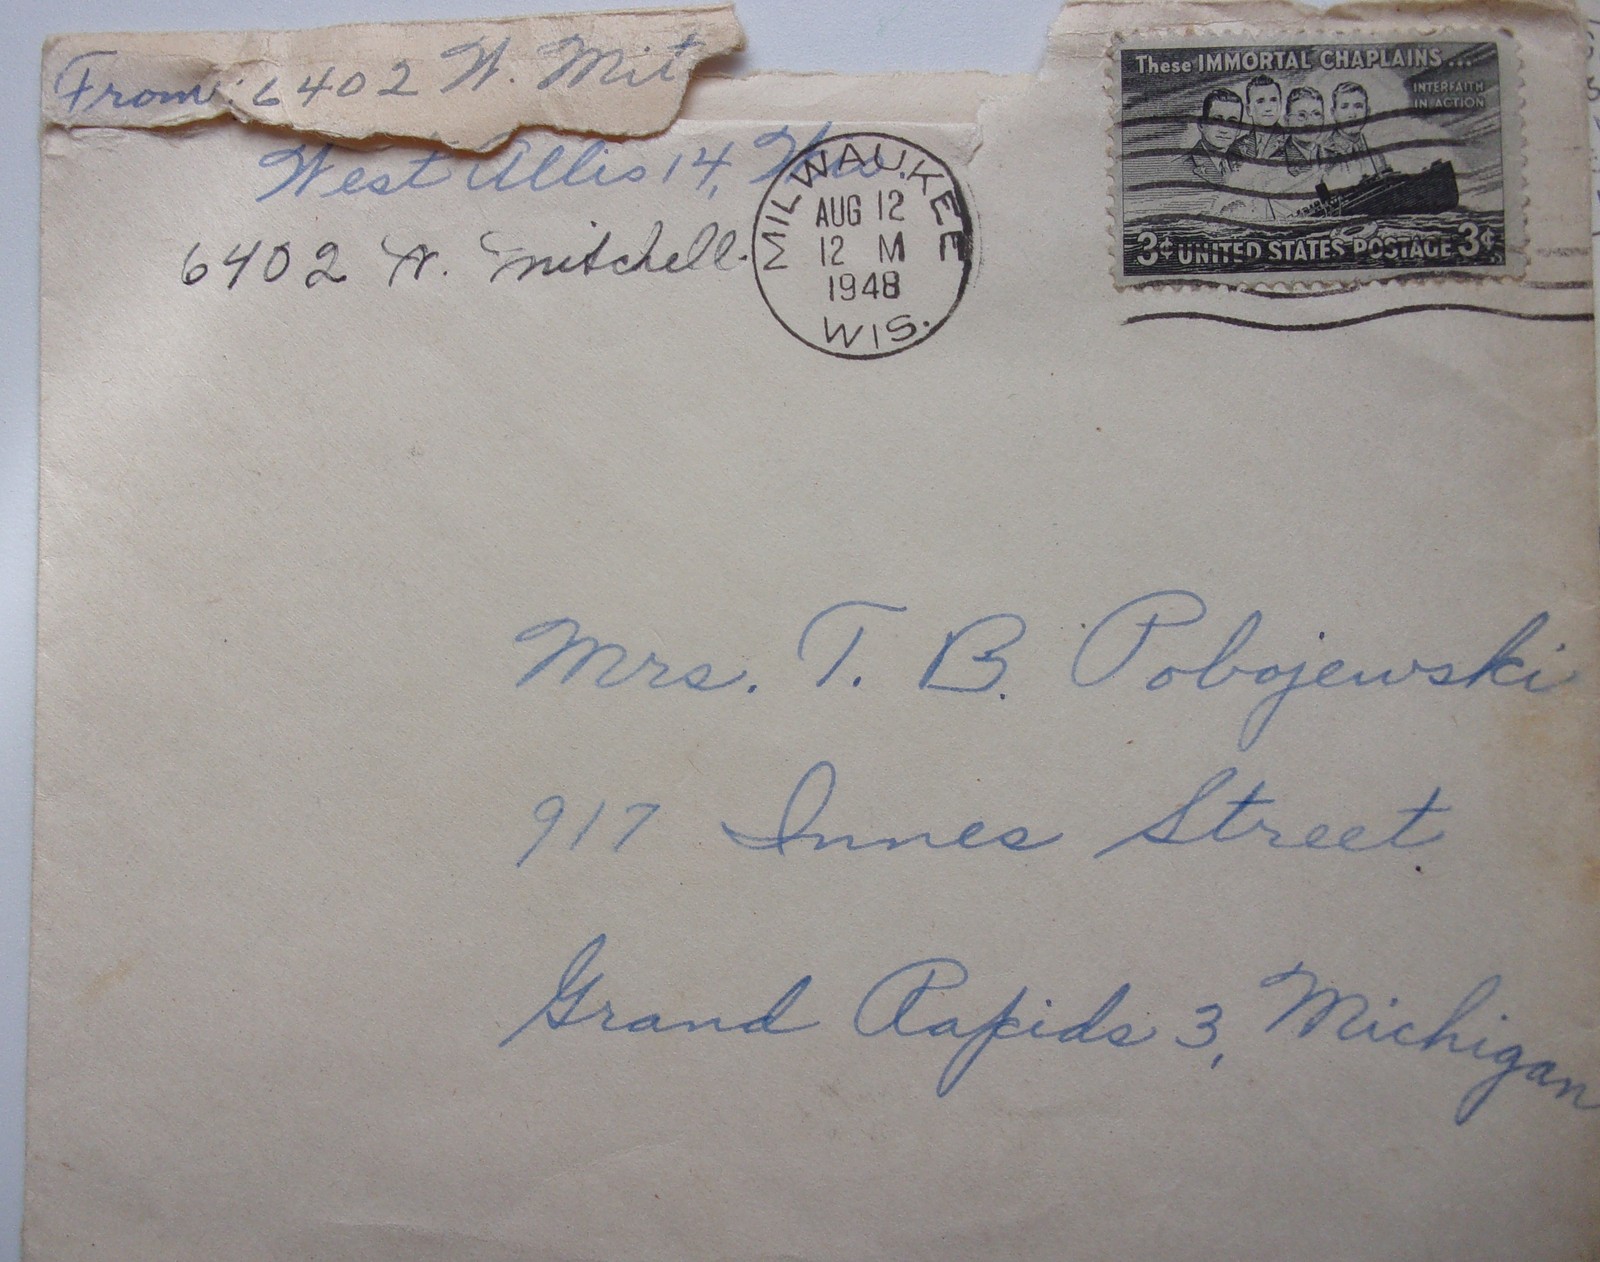 From: 6402 W. Mit
West Allis 14, Wis.
6402 W. Mitchell.
MILWAUKEE
AUG 12
12 M
1948
WIS.
These IMMORTAL CHAPLAINS...
INTERFAITH
IN ACTION
3¢ UNITED STATES POSTAGE 3¢
Mrs. T. B. Pobojewski
917 Innes Street
Grand Rapids 3, Michigan